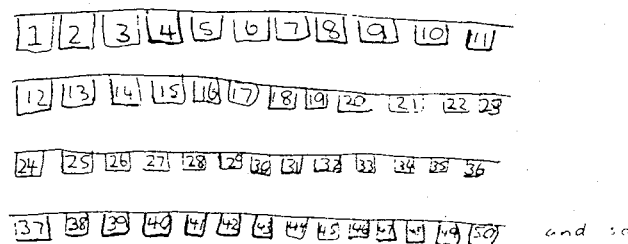 1 2 3 4 5 6 7 8 9 10 11
12 13 14 15 16 17 18 19 20 21 22 23
24 25 26 27 28 29 30 31 32 33 34 35 36
37 38 39 40 41 42 43 44 45 46 47 48 49 50 and so